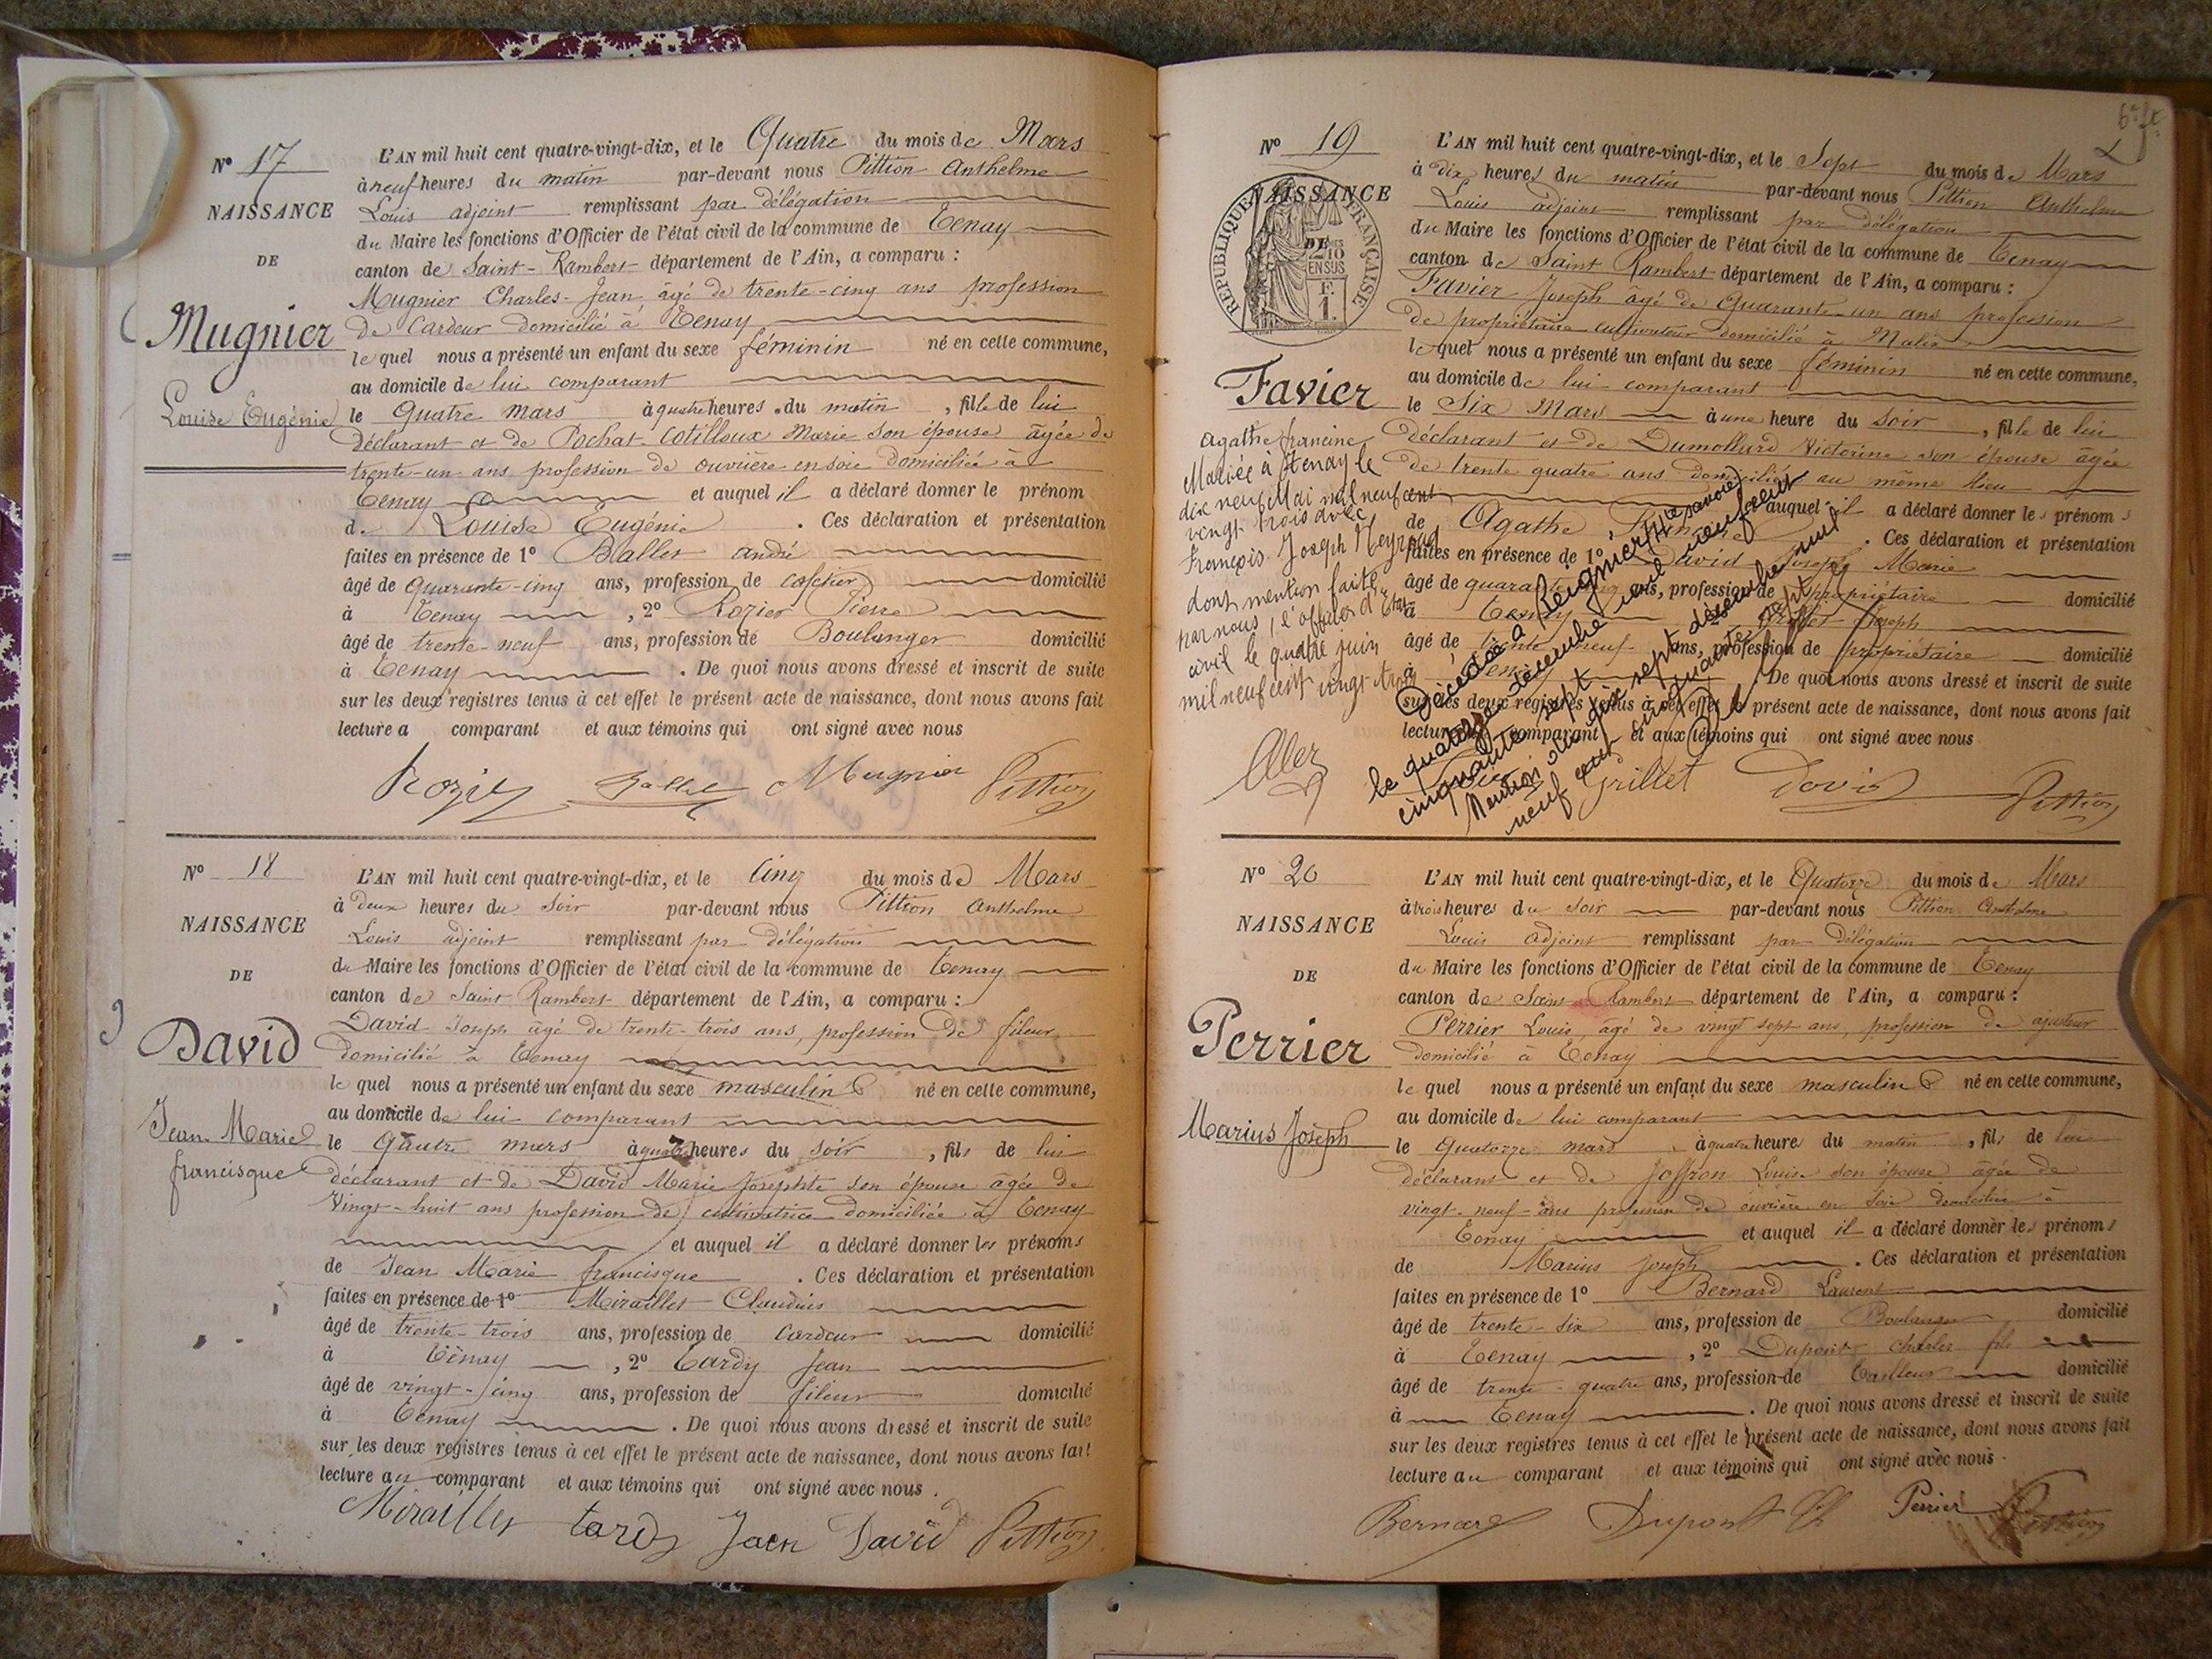 N° 17
NAISSANCE
DE
Mugnier
Louise Eugénie
L'AN mil huit cent quatre-vingt-dix, et le Quatre du mois de Mars
à neuf heures du matin par-devant nous Pittion Anthelme
Louis adjoint remplissant par délégation
du Maire les fonctions d'Officier de l'état civil de la commune de Tenay
canton de Saint-Rambert département de l'Ain, a comparu :
Mugnier Charles-Jean, âgé de trente-cinq ans profession
de Cardeur domicilié à Tenay
lequel nous a présenté un enfant du sexe féminin né en cette commune,
au domicile de lui comparant
le Quatre mars à quatre heures du matin, fille de lui
déclarant et de Pochat-Cotilloux Marie son épouse âgée de
trente-un ans profession de ouvrière en soie domiciliée à
Tenay et auquel il a déclaré donner le prénom
de Louise Eugénie. Ces déclaration et présentation
faites en présence de 1° Ballet andré
âgé de Quarante-cinq ans, profession de cafetier domicilié
à Tenay, 2° Rozier Pierre
âgé de trente-neuf ans, profession de Boulanger domicilié
à Tenay. De quoi nous avons dressé et inscrit de suite
sur les deux registres tenus à cet effet le présent acte de naissance, dont nous avons fait
lecture a comparant et aux témoins qui ont signé avec nous
Rozier Ballet Mugnier Pittion
N° 18
NAISSANCE
DE
David
Jean Marie
francisque
L'AN mil huit cent quatre-vingt-dix, et le Cinq du mois de Mars
à deux heures du soir par-devant nous Pittion Anthelme
Louis adjoint remplissant par délégation
du Maire les fonctions d'Officier de l'état civil de la commune de Tenay
canton de Saint Rambert département de l'Ain, a comparu :
David Joseph âgé de trente-trois ans, profession de fileur
domicilié à Tenay
lequel nous a présenté un enfant du sexe masculin né en cette commune,
au domicile de lui comparant
le Quatre mars à quatre heures du soir, fils de lui
déclarant et de David Marie Josephte son épouse âgée de
Vingt-huit ans profession de cultivatrice domiciliée à Tenay
et auquel il a déclaré donner les prénoms
de Jean Marie francisque. Ces déclaration et présentation
faites en présence de 1° Mirailler Claudius
âgé de trente-trois ans, profession de Cardeur domicilié
à Tenay, 2° Tardy Jean
âgé de vingt-cinq ans, profession de fileur domicilié
à Tenay. De quoi nous avons dressé et inscrit de suite
sur les deux registres tenus à cet effet le présent acte de naissance, dont nous avons fait
lecture au comparant et aux témoins qui ont signé avec nous.
Mirailler tardy Jaen David Pittion
6e ft.
N° 19
NAISSANCE
DE
RÉPUBLIQUE FRANÇAISE
2/10 EN SUS
F. 1.
Favier
Agathe francine
Mariée à Tenay le
dix neuf Mai mil neuf cent
vingt trois avec
François Joseph Meyraud
dont mention faite
par nous, l'officier d'Etat
civil le quatre juin
mil neuf cent vingt-trois
L'AN mil huit cent quatre-vingt-dix, et le Sept du mois de Mars
à dix heures du matin par-devant nous Pittion Anthelme
Louis adjoint remplissant par délégation
du Maire les fonctions d'Officier de l'état civil de la commune de Tenay
canton de Saint Rambert département de l'Ain, a comparu :
Favier Joseph âgé de Quarante-un ans profession
de propriétaire cultivateur domicilié à Malix
lequel nous a présenté un enfant du sexe féminin né en cette commune,
au domicile de lui comparant
le Six Mars à une heure du soir, fille de lui
déclarant et de Dumollard Victorine son épouse âgée
de trente quatre ans domiciliée au même lieu
auquel il a déclaré donner les prénoms
de Agathe Francine. Ces déclaration et présentation
faites en présence de 1° David Joseph Marie
âgé de quarante cinq ans, profession de propriétaire domicilié
à Tenay Grillet Joseph
âgé de trente neuf ans, profession de propriétaire domicilié
à Tenay De quoi nous avons dressé et inscrit de suite
sur les deux registres tenus à cet effet le présent acte de naissance, dont nous avons fait
lecture comparant et aux témoins qui ont signé avec nous
Décédée à Reignier (Hte savoie)
le quatorze décembre mil neuf cent
cinquante sept
Mention du dix sept décembre mil
neuf cent cinquante sept
Grillet David Pittion
N° 20
NAISSANCE
DE
Perrier
Marius Joseph
L'AN mil huit cent quatre-vingt-dix, et le Quatorze du mois de Mars
à trois heures du soir par-devant nous Pittion Anthelme
Louis adjoint remplissant par délégation
du Maire les fonctions d'Officier de l'état civil de la commune de Tenay
canton de Saint Rambert département de l'Ain, a comparu :
Perrier Louis, âgé de vingt sept ans, profession de ajusteur
domicilié à Tenay
lequel nous a présenté un enfant du sexe masculin né en cette commune,
au domicile de lui comparant
le Quatorze mars à quatre heures du matin, fils de lui
déclarant et de Joffron Louise son épouse âgée de
vingt-neuf ans profession de ouvrière en soie domiciliée à
Tenay et auquel il a déclaré donner les prénoms
de Marius Joseph. Ces déclaration et présentation
faites en présence de 1° Bernard Laurent
âgé de trente-six ans, profession de Boulanger domicilié
à Tenay, 2° Dupont Charles fils
âgé de trente-quatre ans, profession de Tailleur domicilié
à Tenay. De quoi nous avons dressé et inscrit de suite
sur les deux registres tenus à cet effet le présent acte de naissance, dont nous avons fait
lecture au comparant et aux témoins qui ont signé avec nous.
Bernard Dupont Ch Perrier Pittion